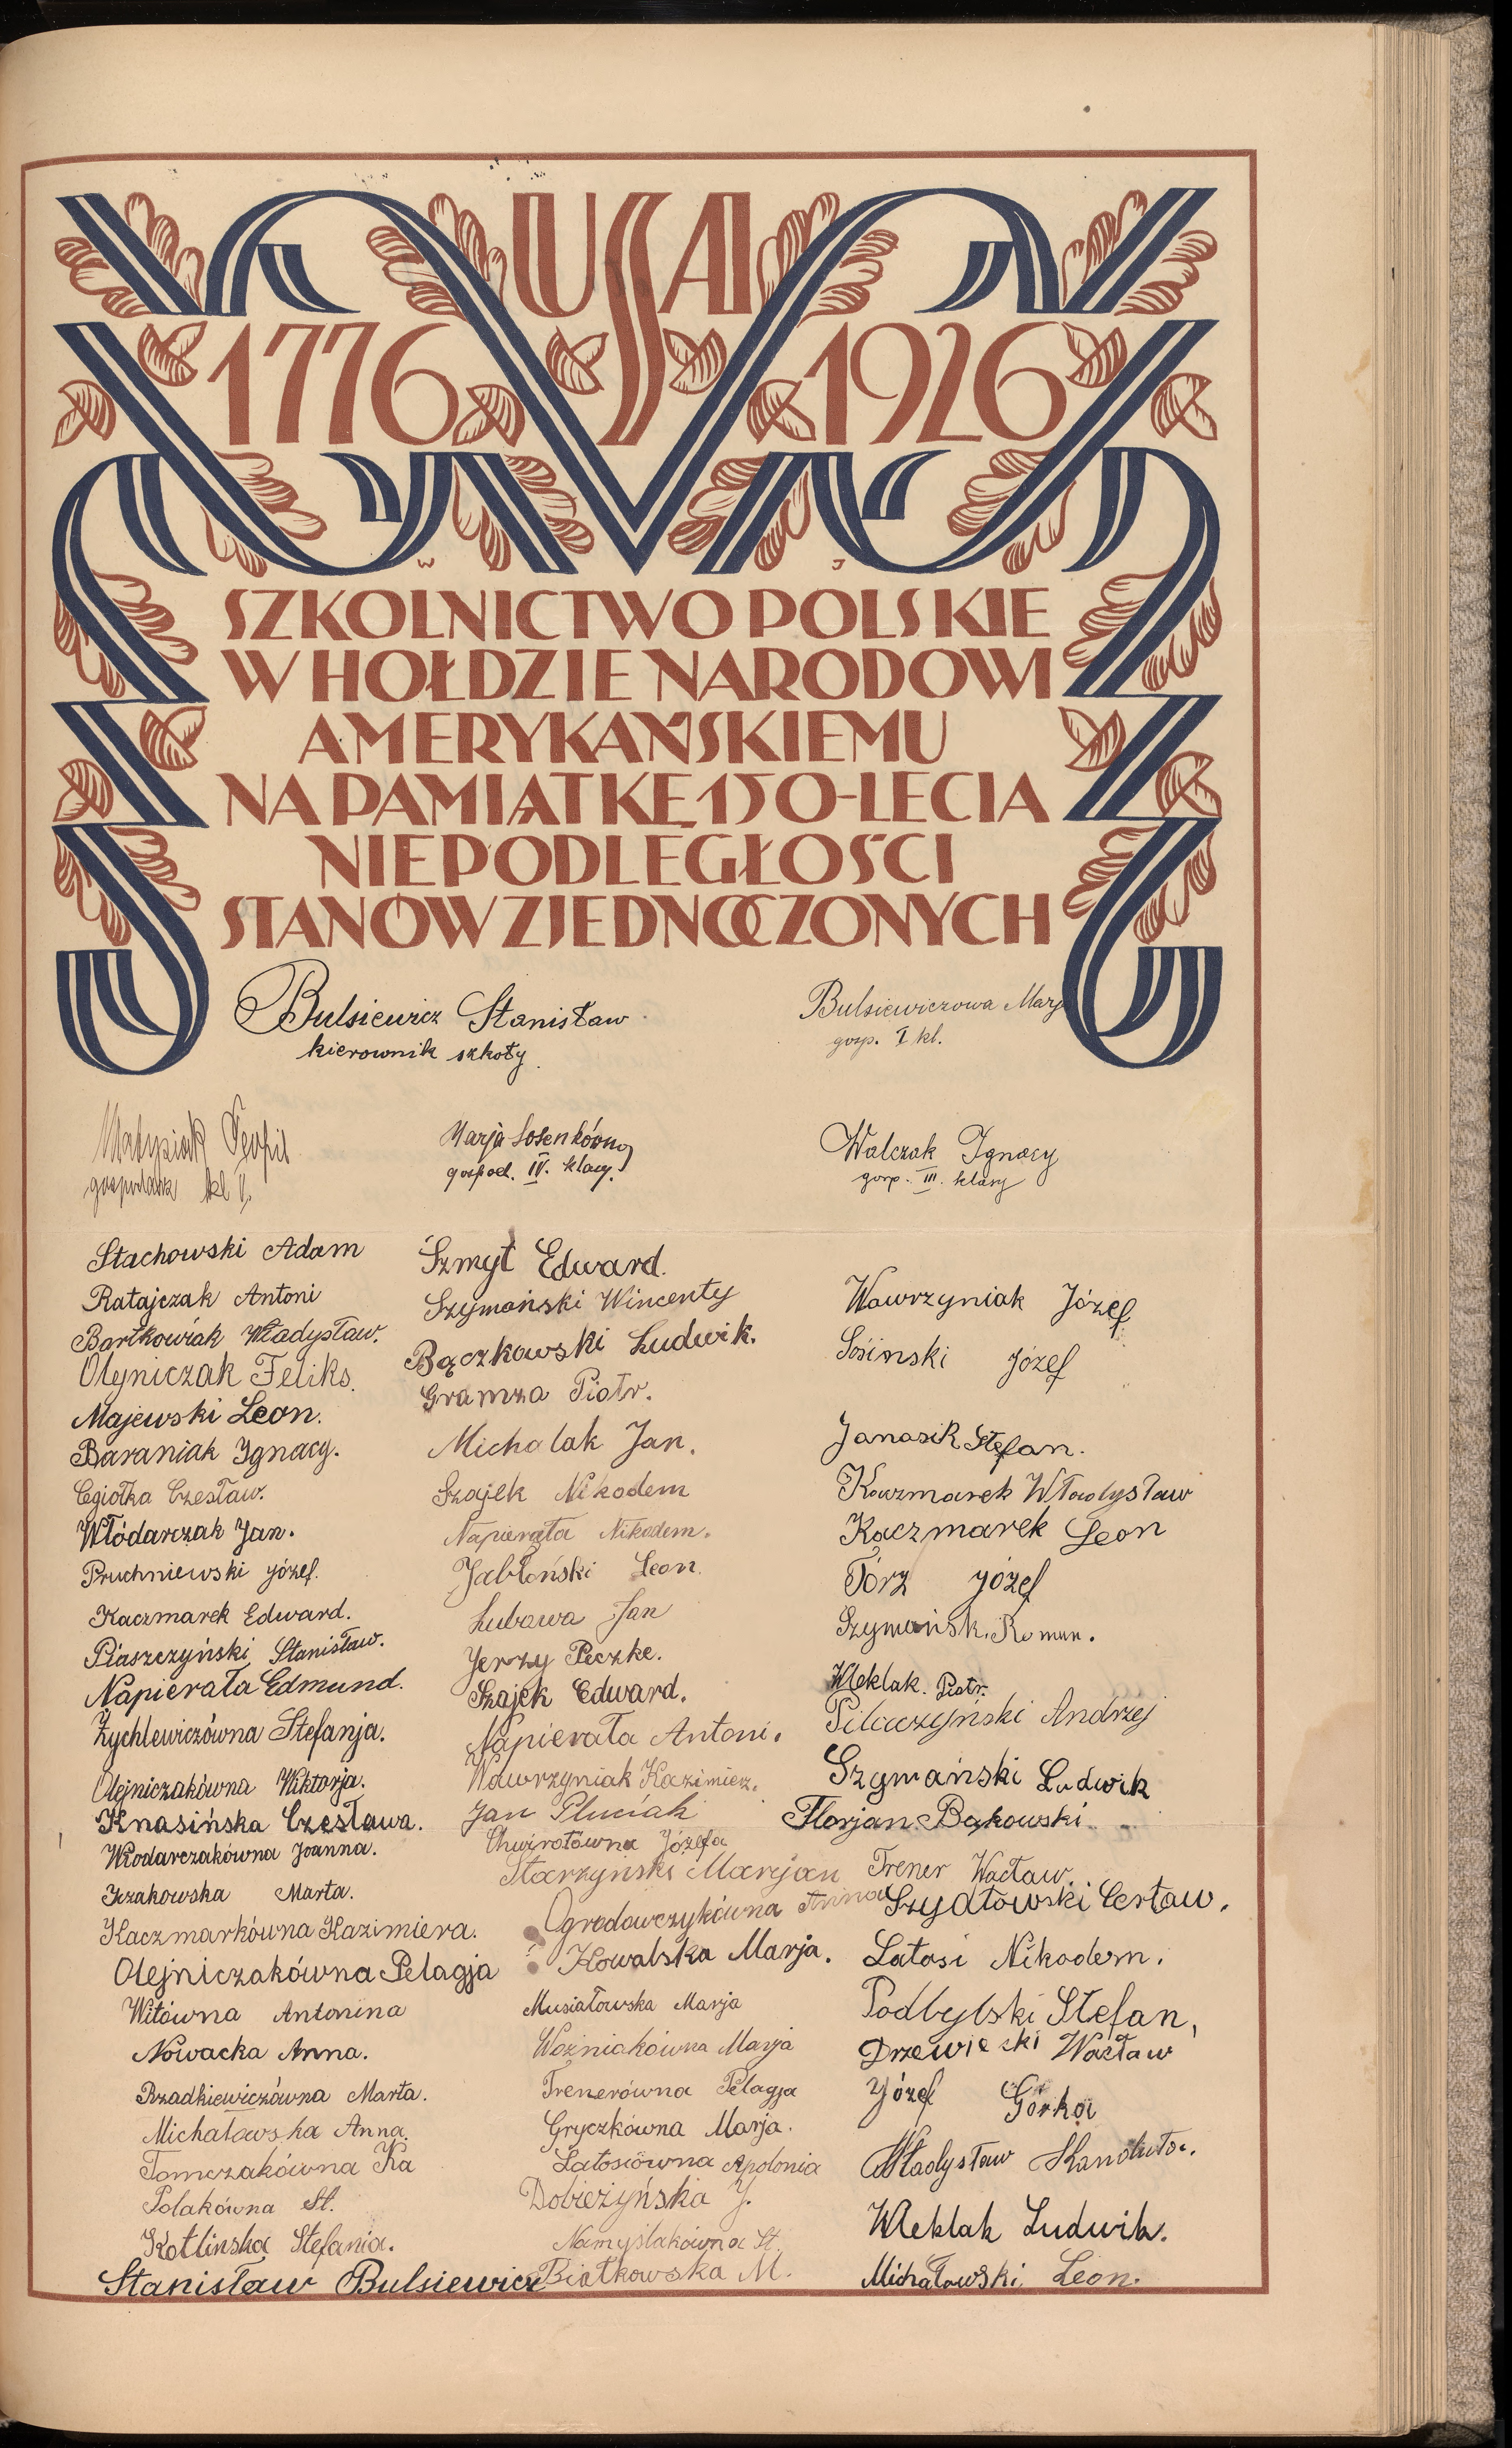 USA
1776 1926
W J
SZKOLNICTWO POLSKIE
W HOŁDZIE NARODOWI
AMERYKAŃSKIEMU
NA PAMIĄTKĘ 150-LECIA
NIEPODLEGŁOŚCI
STANÓW ZJEDNOCZONYCH
Bulsiewicz Stanisław
kierownik szkoły.
Bulsiewiczowa Marj
gosp. I kl.
Matysiak Teofil
gospodarz kl V.
Marja Sosenkówna
gospod. IV. klasy.
Walczak Ignacy
gosp. III. klasy
Stachowski Adam
Ratajczak Antoni
Bartkowiak Władysław.
Olejniczak Feliks.
Majewski Leon.
Baraniak Ignacy.
Cegiołka Czesław.
Włódarczak Jan.
Pruchniewski Józef.
Kaczmarek Edward.
Piaszczyński Stanisław.
Napierała Edmund.
Żychlewiczówna Stefanja.
Olejniczakówna Wiktorja.
Knasińska Czesława.
Włodarczakówna Joanna.
Iczakowska Marta.
Kaczmarkówna Kazimiera.
Olejniczakówna Pelagja
Witówna Antonina
Nowacka Anna.
Rzadkiewiczówna Marta.
Michałowska Anna.
Tomczakówna Ka
Polakówna St.
Kotlinska Stefania.
Stanisław Bulsiewicz
Szmyt Edward.
Szymański Wincenty
Bączkowski Ludwik.
Gramza Piotr.
Michalak Jan.
Szajek Nikodem
Napierała Nikodem.
Jabłoński Leon.
Lubawa Jan
Jerzy Peczke.
Szajek Edward.
Napierała Antoni.
Wawrzyniak Kazimierz.
Jan Pluciak
Chwirotówna Józefa
Starzyński Marjan
Ogrodowczykówna Anna
Kowalska Marja.
Musiałowska Marja
Woźniakówna Marja
Trenerówna Pelagja
Gryczkówna Marja.
Latosiówna Apolonia
Dobieżyńska J.
Namyślakówna St.
Białkowska M.
Wawrzyniak Józef
Sośinski Józef
Janasik Stefan.
Kaczmarek Władysław
Kaczmarek Leon
Tórz Józef
Szymańsk. Roman.
Kleklak. Piotr.
Pilaczyński Andrzej
Szymański Ludwik
Florjan Bąkowski
Trener Wacław.
Szydłowski Cerław.
Latosi Nikodem.
Podbylski Stefan,
Drzewiecki Wacław
Józef Górka
Władysław
Kleklak Ludwik.
Michałowski Leon.